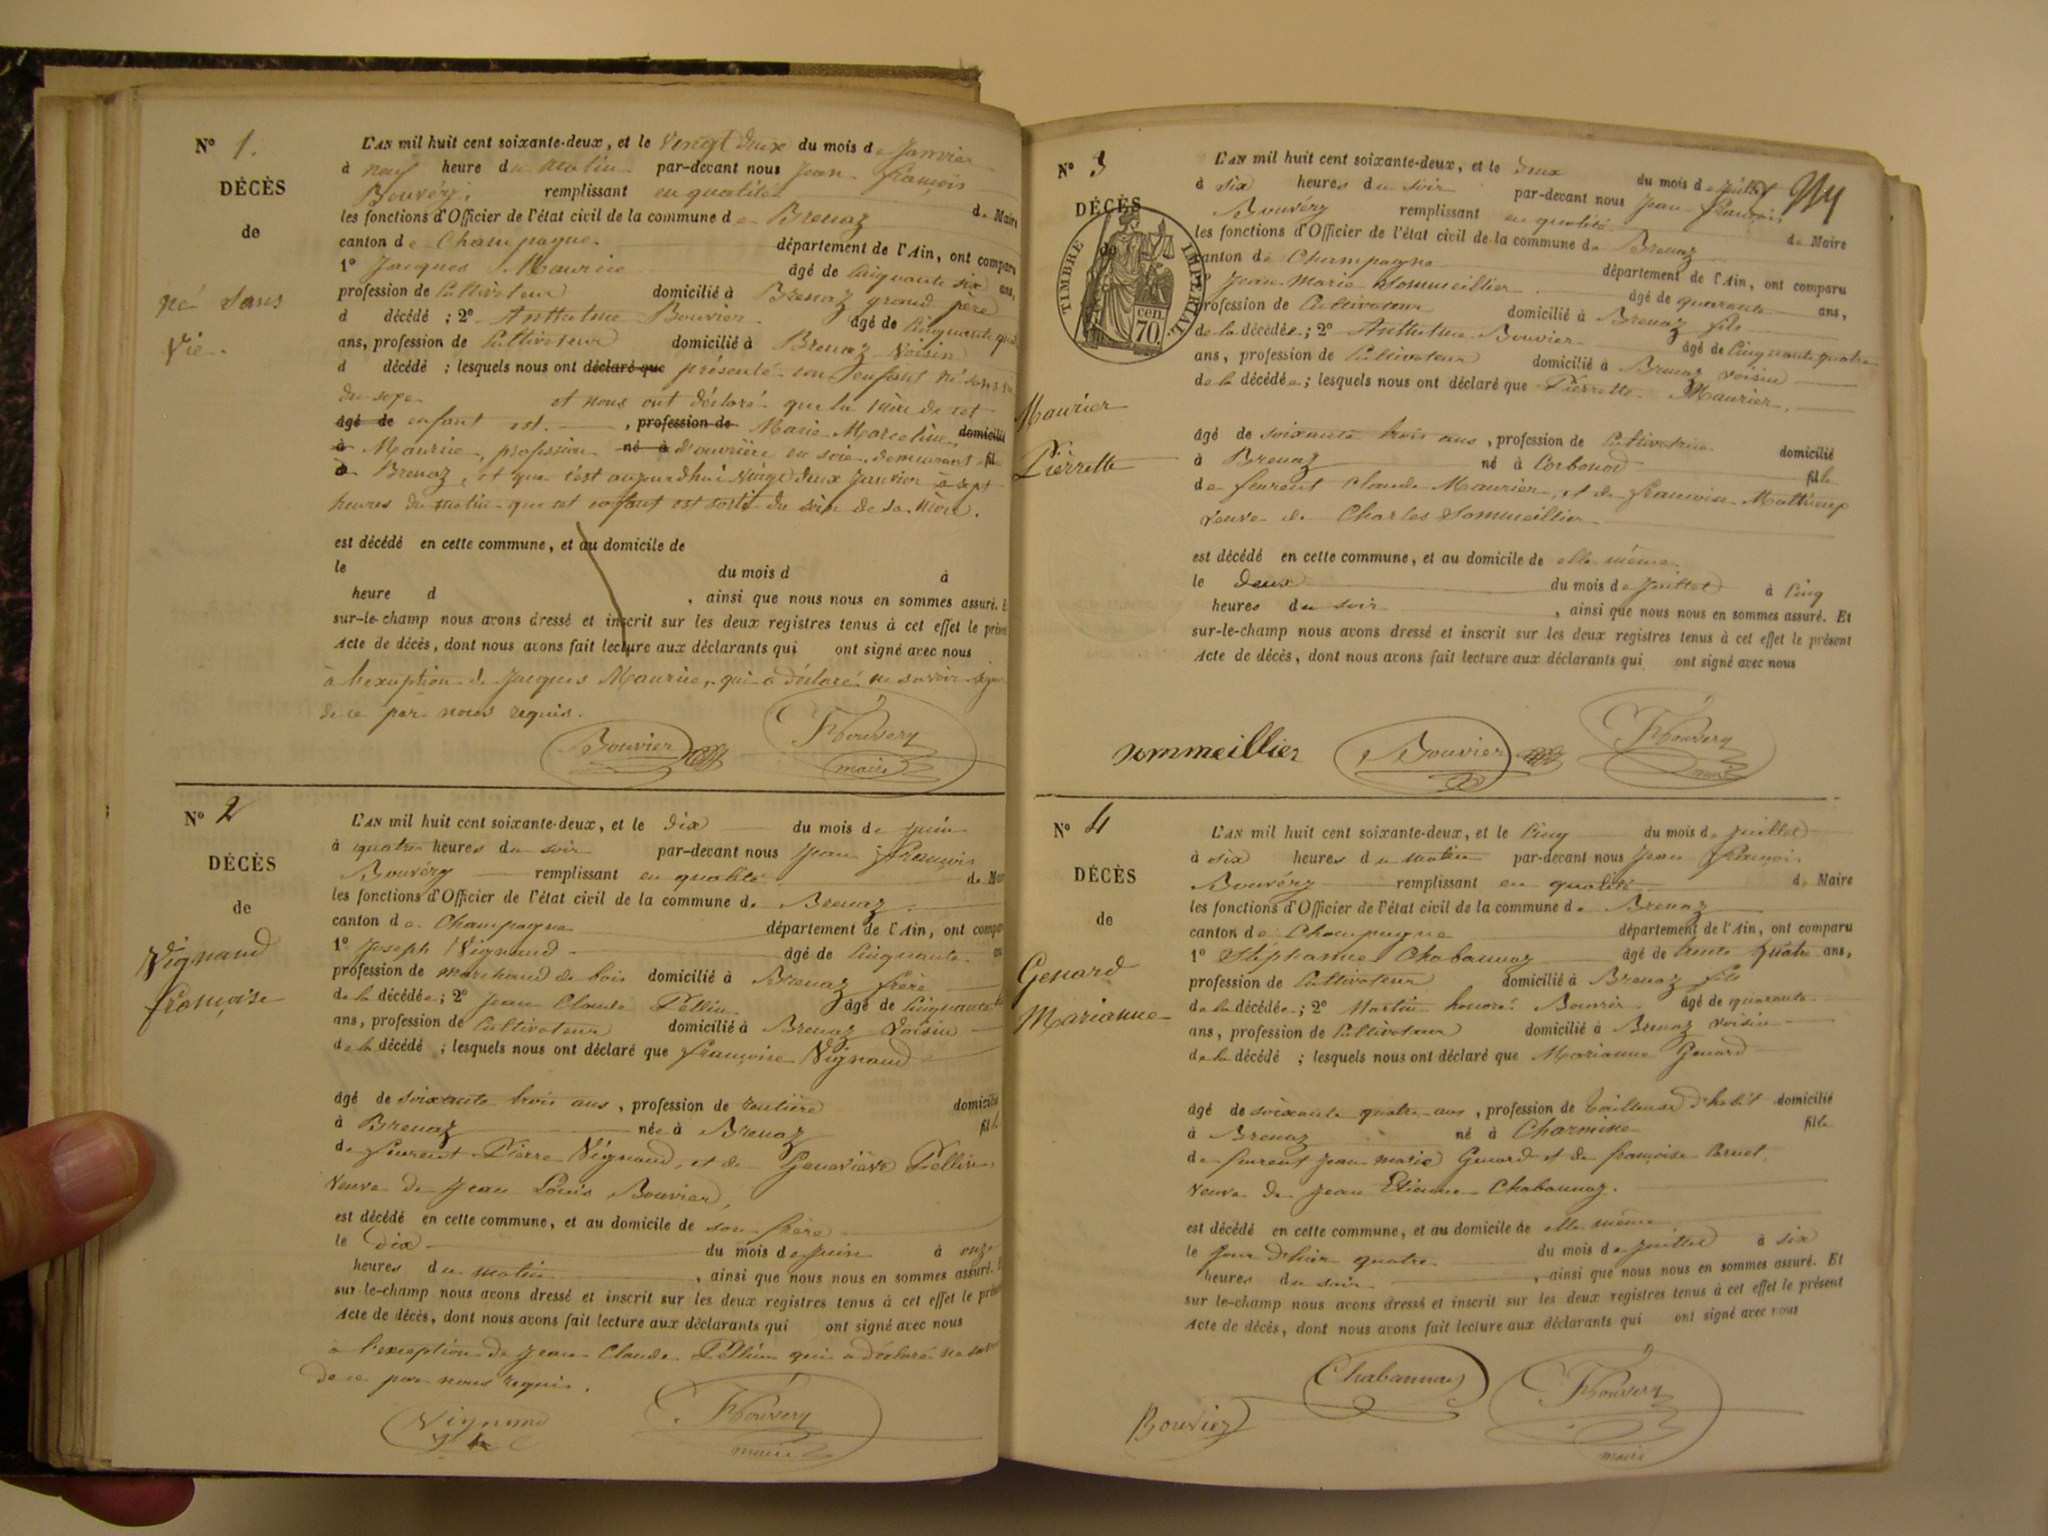 N° 1.
DÉCÈS
de
né sans
vie.
L'AN mil huit cent soixante-deux, et le vingt deux du mois de Janvier
à neuf heure du matin par-devant nous Jean françois
Bouvéry, remplissant en qualité de Maire
les fonctions d'Officier de l'état civil de la commune de Brenaz
canton de Champagne département de l'Ain, ont comparu
1° Jacques Maurier âgé de Cinquante six ans,
profession de Cultivateur domicilié à Brenaz grand père
d décédé ; 2° Anthelme Bouvier âgé de Cinquante
ans, profession de Cultivateur domicilié à Brenaz voisin
d décédé ; lesquels nous ont déclaré que présenté un enfant né sans
du sexe et nous ont déclaré que la mère de cet
âgé de enfant est , profession de Marie Marceline domicilié
à Maurier, profession né à d'ouvrière en soie, demeurant fil
de Brenaz, et que c'est aujourdhui vingt deux Janvier à sept
heures du matin que cet enfant est sorti du sein de sa mère.
est décédé en cette commune, et au domicile de
le du mois d à
heure d , ainsi que nous nous en sommes assuré.
sur-le-champ nous avons dressé et inscrit sur les deux registres tenus à cet effet le
Acte de décès, dont nous avons fait lecture aux déclarants qui ont signé avec nous
à l'exception de Jacques Maurier, qui a déclaré ne savoir
de ce par nous requis.
Bouvier
Bouvery
maire
N° 2
DÉCÈS
de
Vignaud
françoise
L'AN mil huit cent soixante-deux, et le dix du mois de Juin
à quatre heures du soir par-devant nous Jean françois
Bouvéry remplissant en qualité de
les fonctions d'Officier de l'état civil de la commune de Brenaz
canton de Champagne département de l'Ain, ont
1° Joseph Vignaud âgé de Cinquante
profession de marchand de bois domicilié à Brenaz frère
de la décédée ; 2° Jean Claude Pellin âgé de Cinquante
ans, profession de Cultivateur domicilié à Brenaz voisin
de la décédé ; lesquels nous ont déclaré que françoise Vignaud
âgé de soixante trois ans, profession de rentière domicilié
à Brenaz née à Brenaz fille
de feurent Pierre Vignaud, et de Geneviève Pellin
veuve de Jean Louis Bouvier,
est décédé en cette commune, et au domicile de son frère
le dix du mois de Juin à onze
heures du matin , ainsi que nous nous en sommes assuré.
sur le-champ nous avons dressé et inscrit sur les deux registres tenus à cet effet le
Acte de décès, dont nous avons fait lecture aux déclarants qui ont signé avec nous
à l'exception de Jean Claude Pellin qui a déclaré ne
de ce par nous requis.
Vignaud
Bouvery
maire
N° 3
DÉCÈS
de
TIMBRE IMPÉRIAL
cen.
70.
Maurier
Pierrette
L'AN mil huit cent soixante-deux, et le deux du mois de Juillet
à six heures du soir par-devant nous Jean françois
Bouvéry remplissant en qualité de Maire
les fonctions d'Officier de l'état civil de la commune de Brenaz
canton de Champagne département de l'Ain, ont comparu
1° Jean Marie Sommeillier âgé de quarante ans,
profession de Cultivateur domicilié à Brenaz fils
de la décédée ; 2° Anthelme Bouvier âgé de Cinquante quatre
ans, profession de Cultivateur domicilié à Brenaz voisin
de la décédée ; lesquels nous ont déclaré que Pierrette Maurier,
âgé de soixante trois ans, profession de Cultivatrice domicilié
à Brenaz né à Corbonod fille
de feurent Claude Maurier, et de françoise Mathieux
veuve de Charles Sommeillier
est décédé en cette commune, et au domicile de elle même
le deux du mois de Juillet à Cinq
heures du soir , ainsi que nous nous en sommes assuré. Et
sur-le-champ nous avons dressé et inscrit sur les deux registres tenus à cet effet le présent
Acte de décès, dont nous avons fait lecture aux déclarants qui ont signé avec nous
sommeillier
Bouvier
Bouvery
maire
N° 4
DÉCÈS
de
Genard
Marianne
L'AN mil huit cent soixante-deux, et le Cinq du mois de Juillet
à six heures du matin par-devant nous Jean françois
Bouvéry remplissant en qualité de Maire
les fonctions d'Officier de l'état civil de la commune de Brenaz
canton de Champagne département de l'Ain, ont comparu
1° Stéphanne Chabannaz âgé de trente quatre ans,
profession de Cultivateur domicilié à Brenaz fils
de la décédée ; 2° Martin honoré Bouvier âgé de quarante
ans, profession de Cultivateur domicilié à Brenaz voisin
de la décédé ; lesquels nous ont déclaré que Marianne Genard
âgé de soixante quatre ans, profession de tailleuse d'habit domicilié
à Brenaz né à Charmine fille
de feurent Jean marie Genard et de françoise
veuve de Jean Etienne Chabannaz.
est décédé en cette commune, et au domicile de elle même
le jour d'hier quatre du mois de Juillet à six
heures du soir , ainsi que nous nous en sommes assuré. Et
sur le-champ nous avons dressé et inscrit sur les deux registres tenus à cet effet le présent
Acte de décès, dont nous avons fait lecture aux déclarants qui ont signé avec nous
Chabannaz
Bouvier
Bouvery
maire